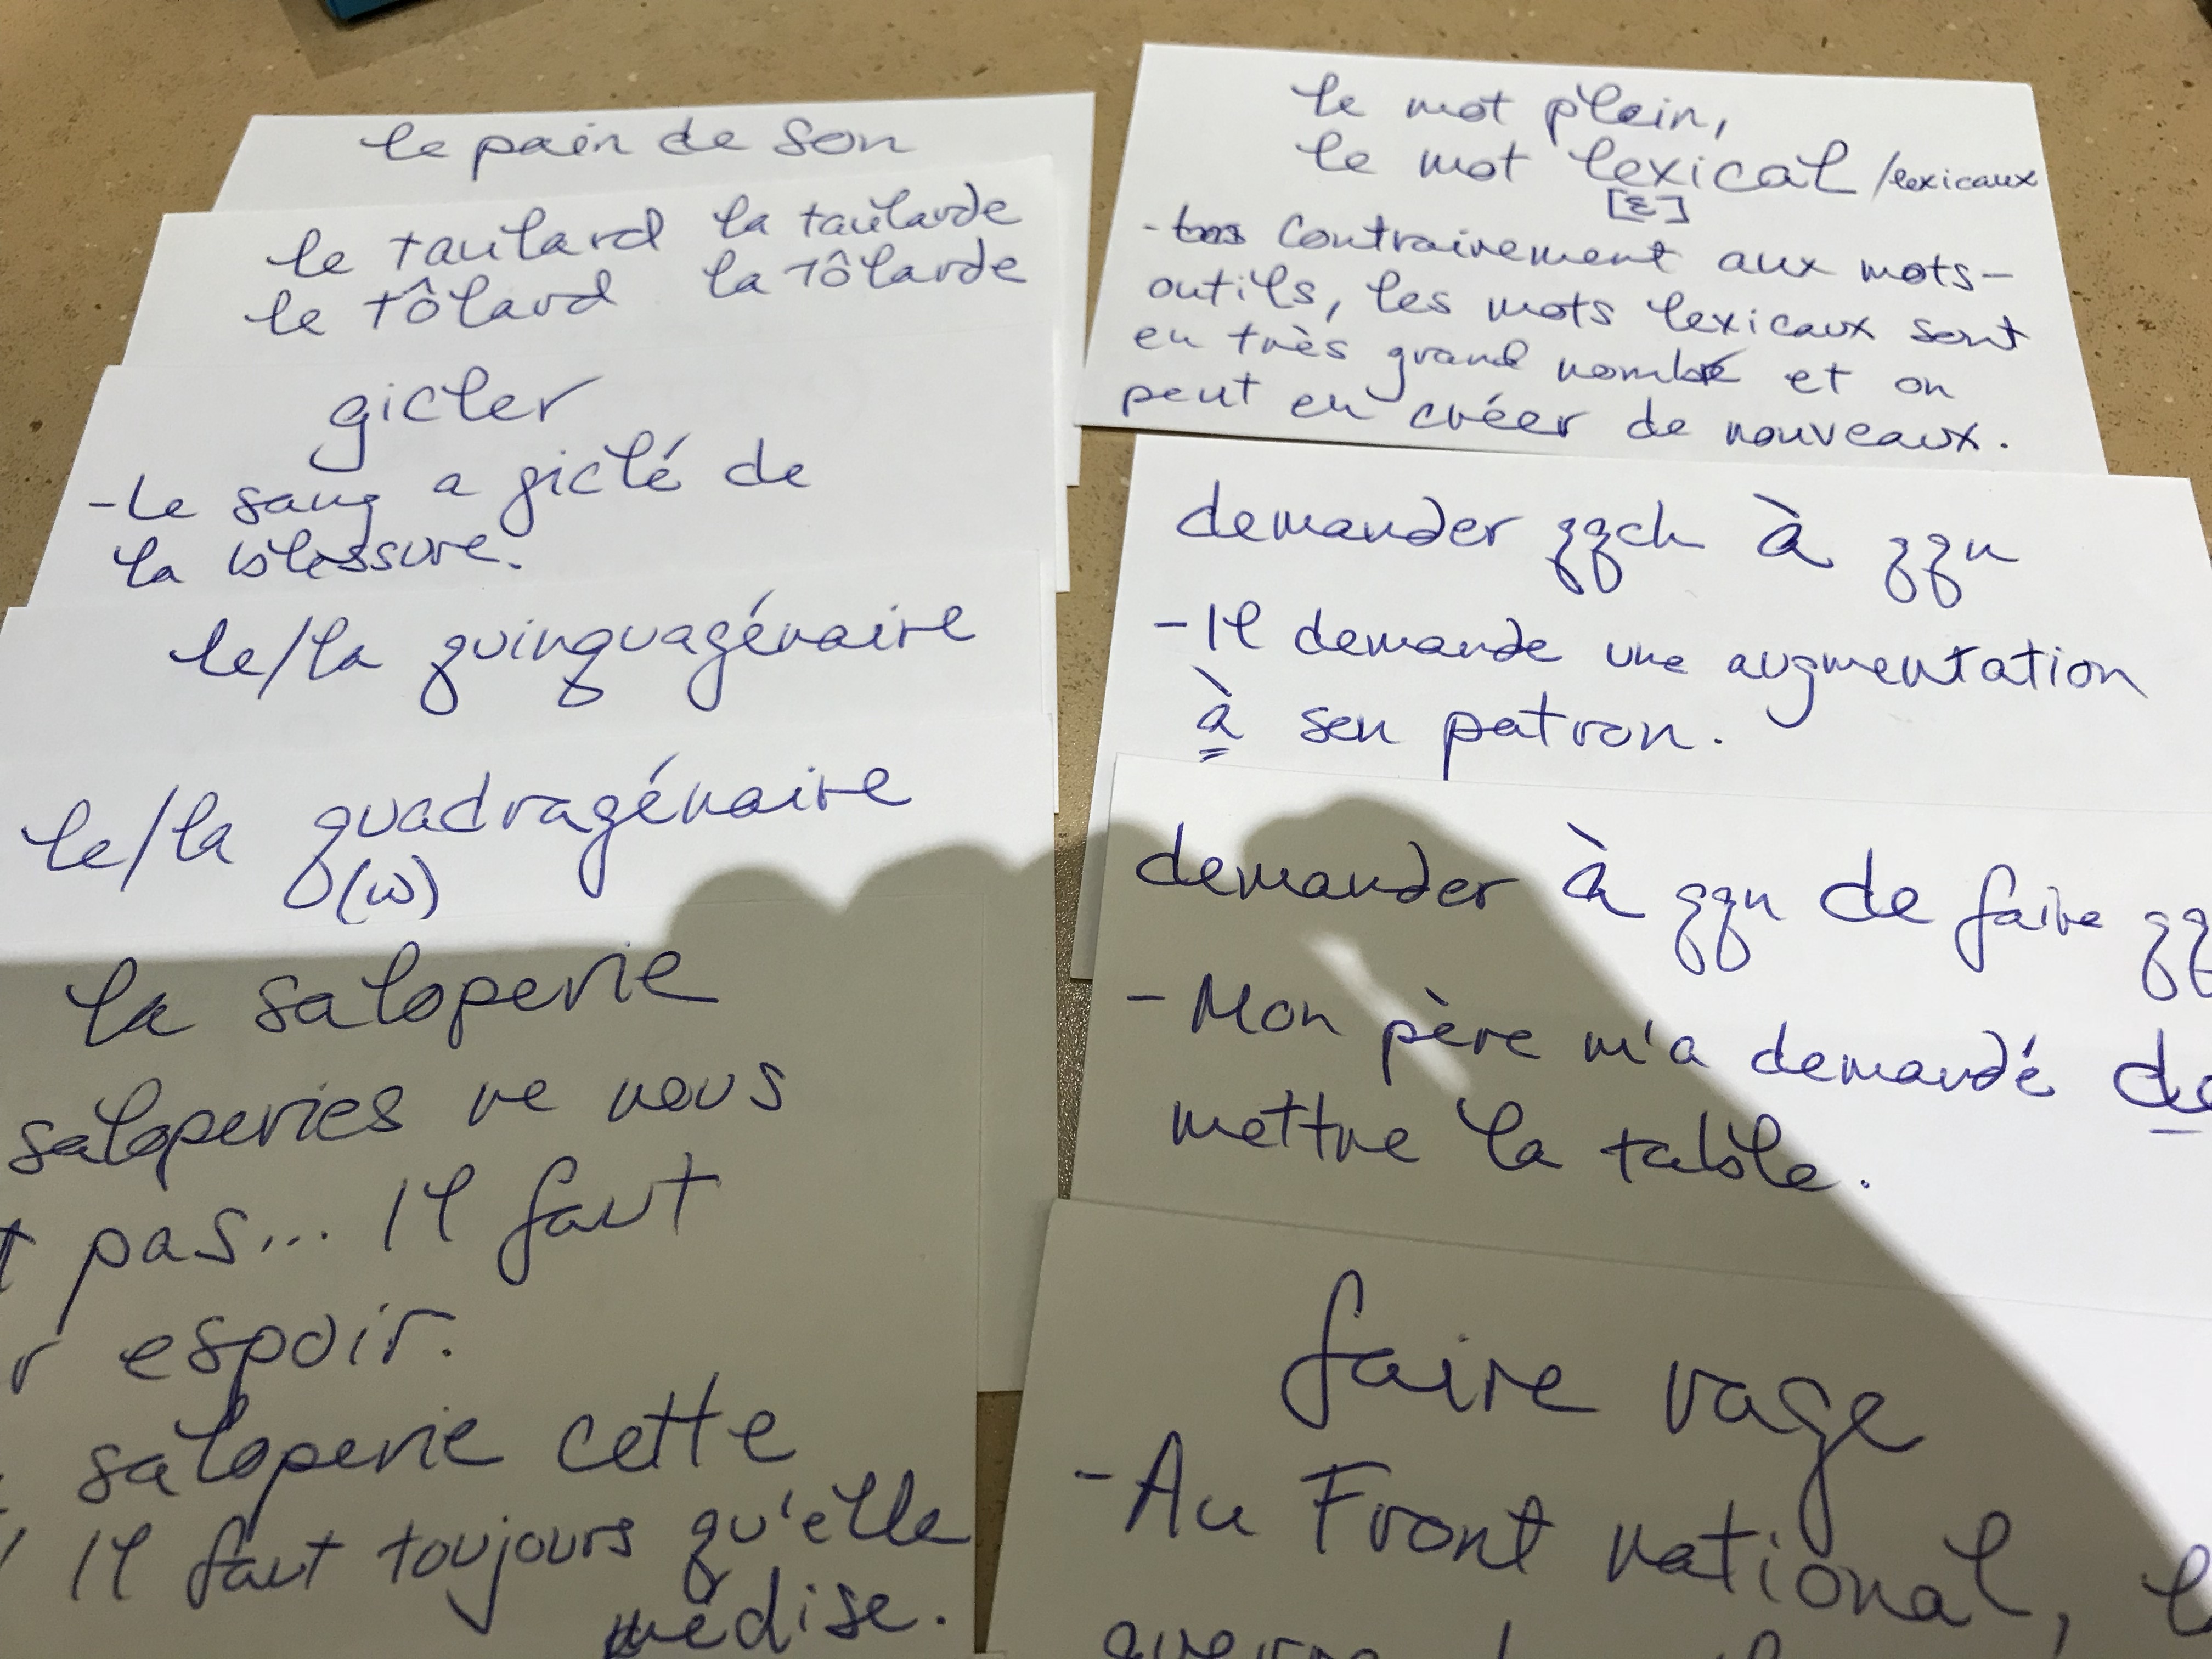 le pain de son
le taulard la taularde
le tôlard la tôlarde
gicler
- Le sang a giclé de
la blessure.
le/la quinquagénaire
le/la quadragénaire
(w)
la saloperie
saloperies ne nous
pas... Il faut
espoir.
saloperie cette
Il faut toujours qu'elle
médise.
le mot plein,
le mot lexical / lexicaux
[ɛ]
- Contrairement aux mots-
outils, les mots lexicaux sont
en très grand nombre et on
peut en créer de nouveaux.
demander qqch à qqn
- Il demande une augmentation
à son patron.
demander à qqn de faire qq
- Mon père m'a demandé de
mettre la table.
faire rage
- Au Front national,